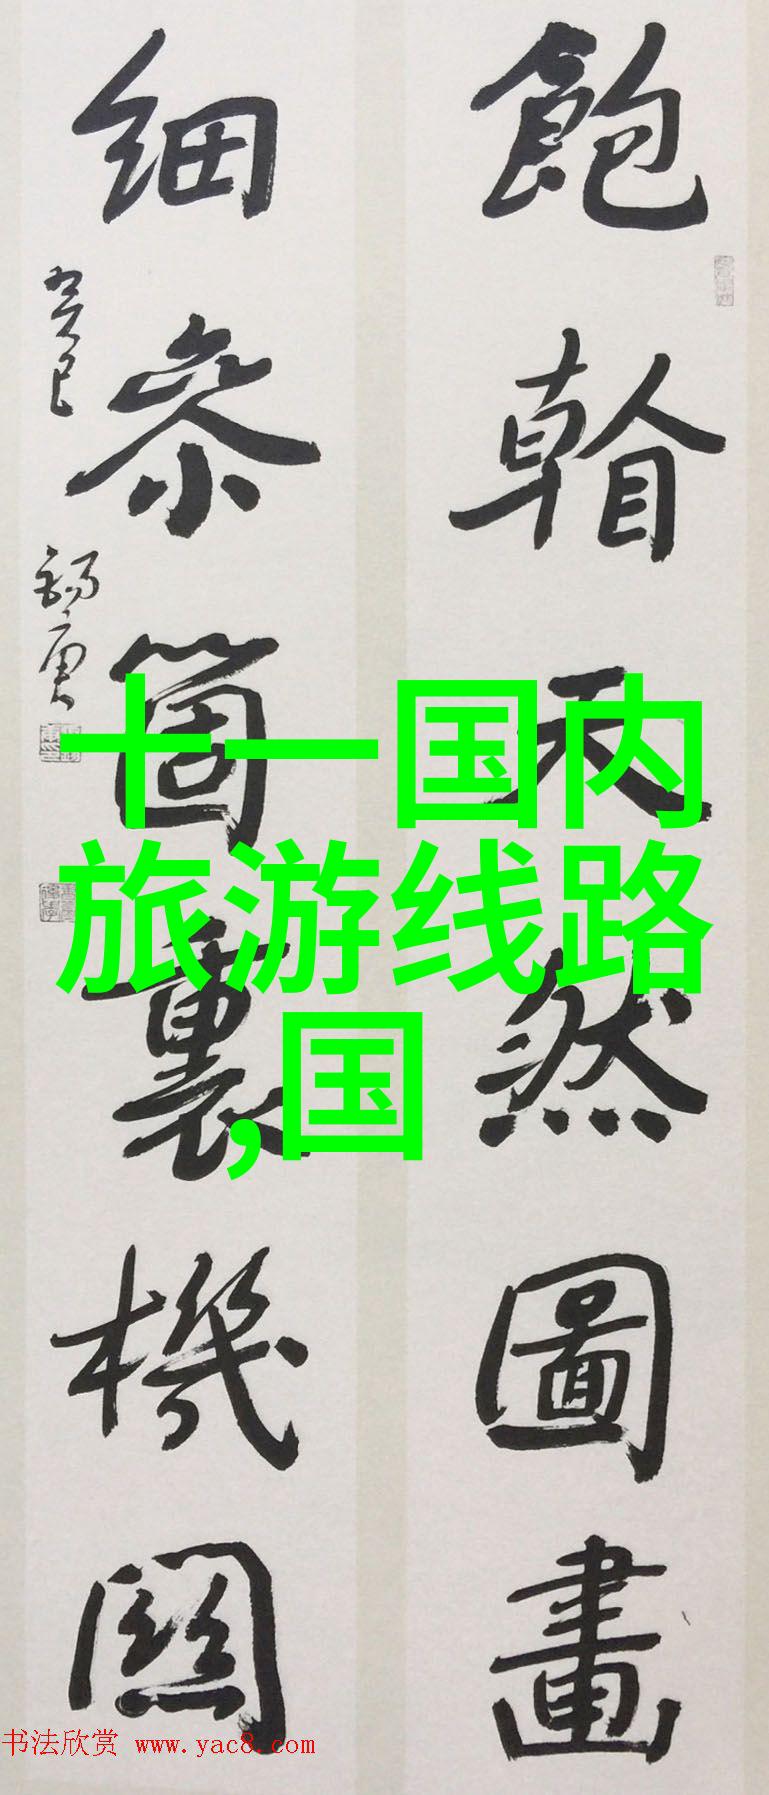 飽看天然圖畫
細參箇裏機關
癸巳
十一国内
旅游线路
,国
书法欣赏 www.yac8.com